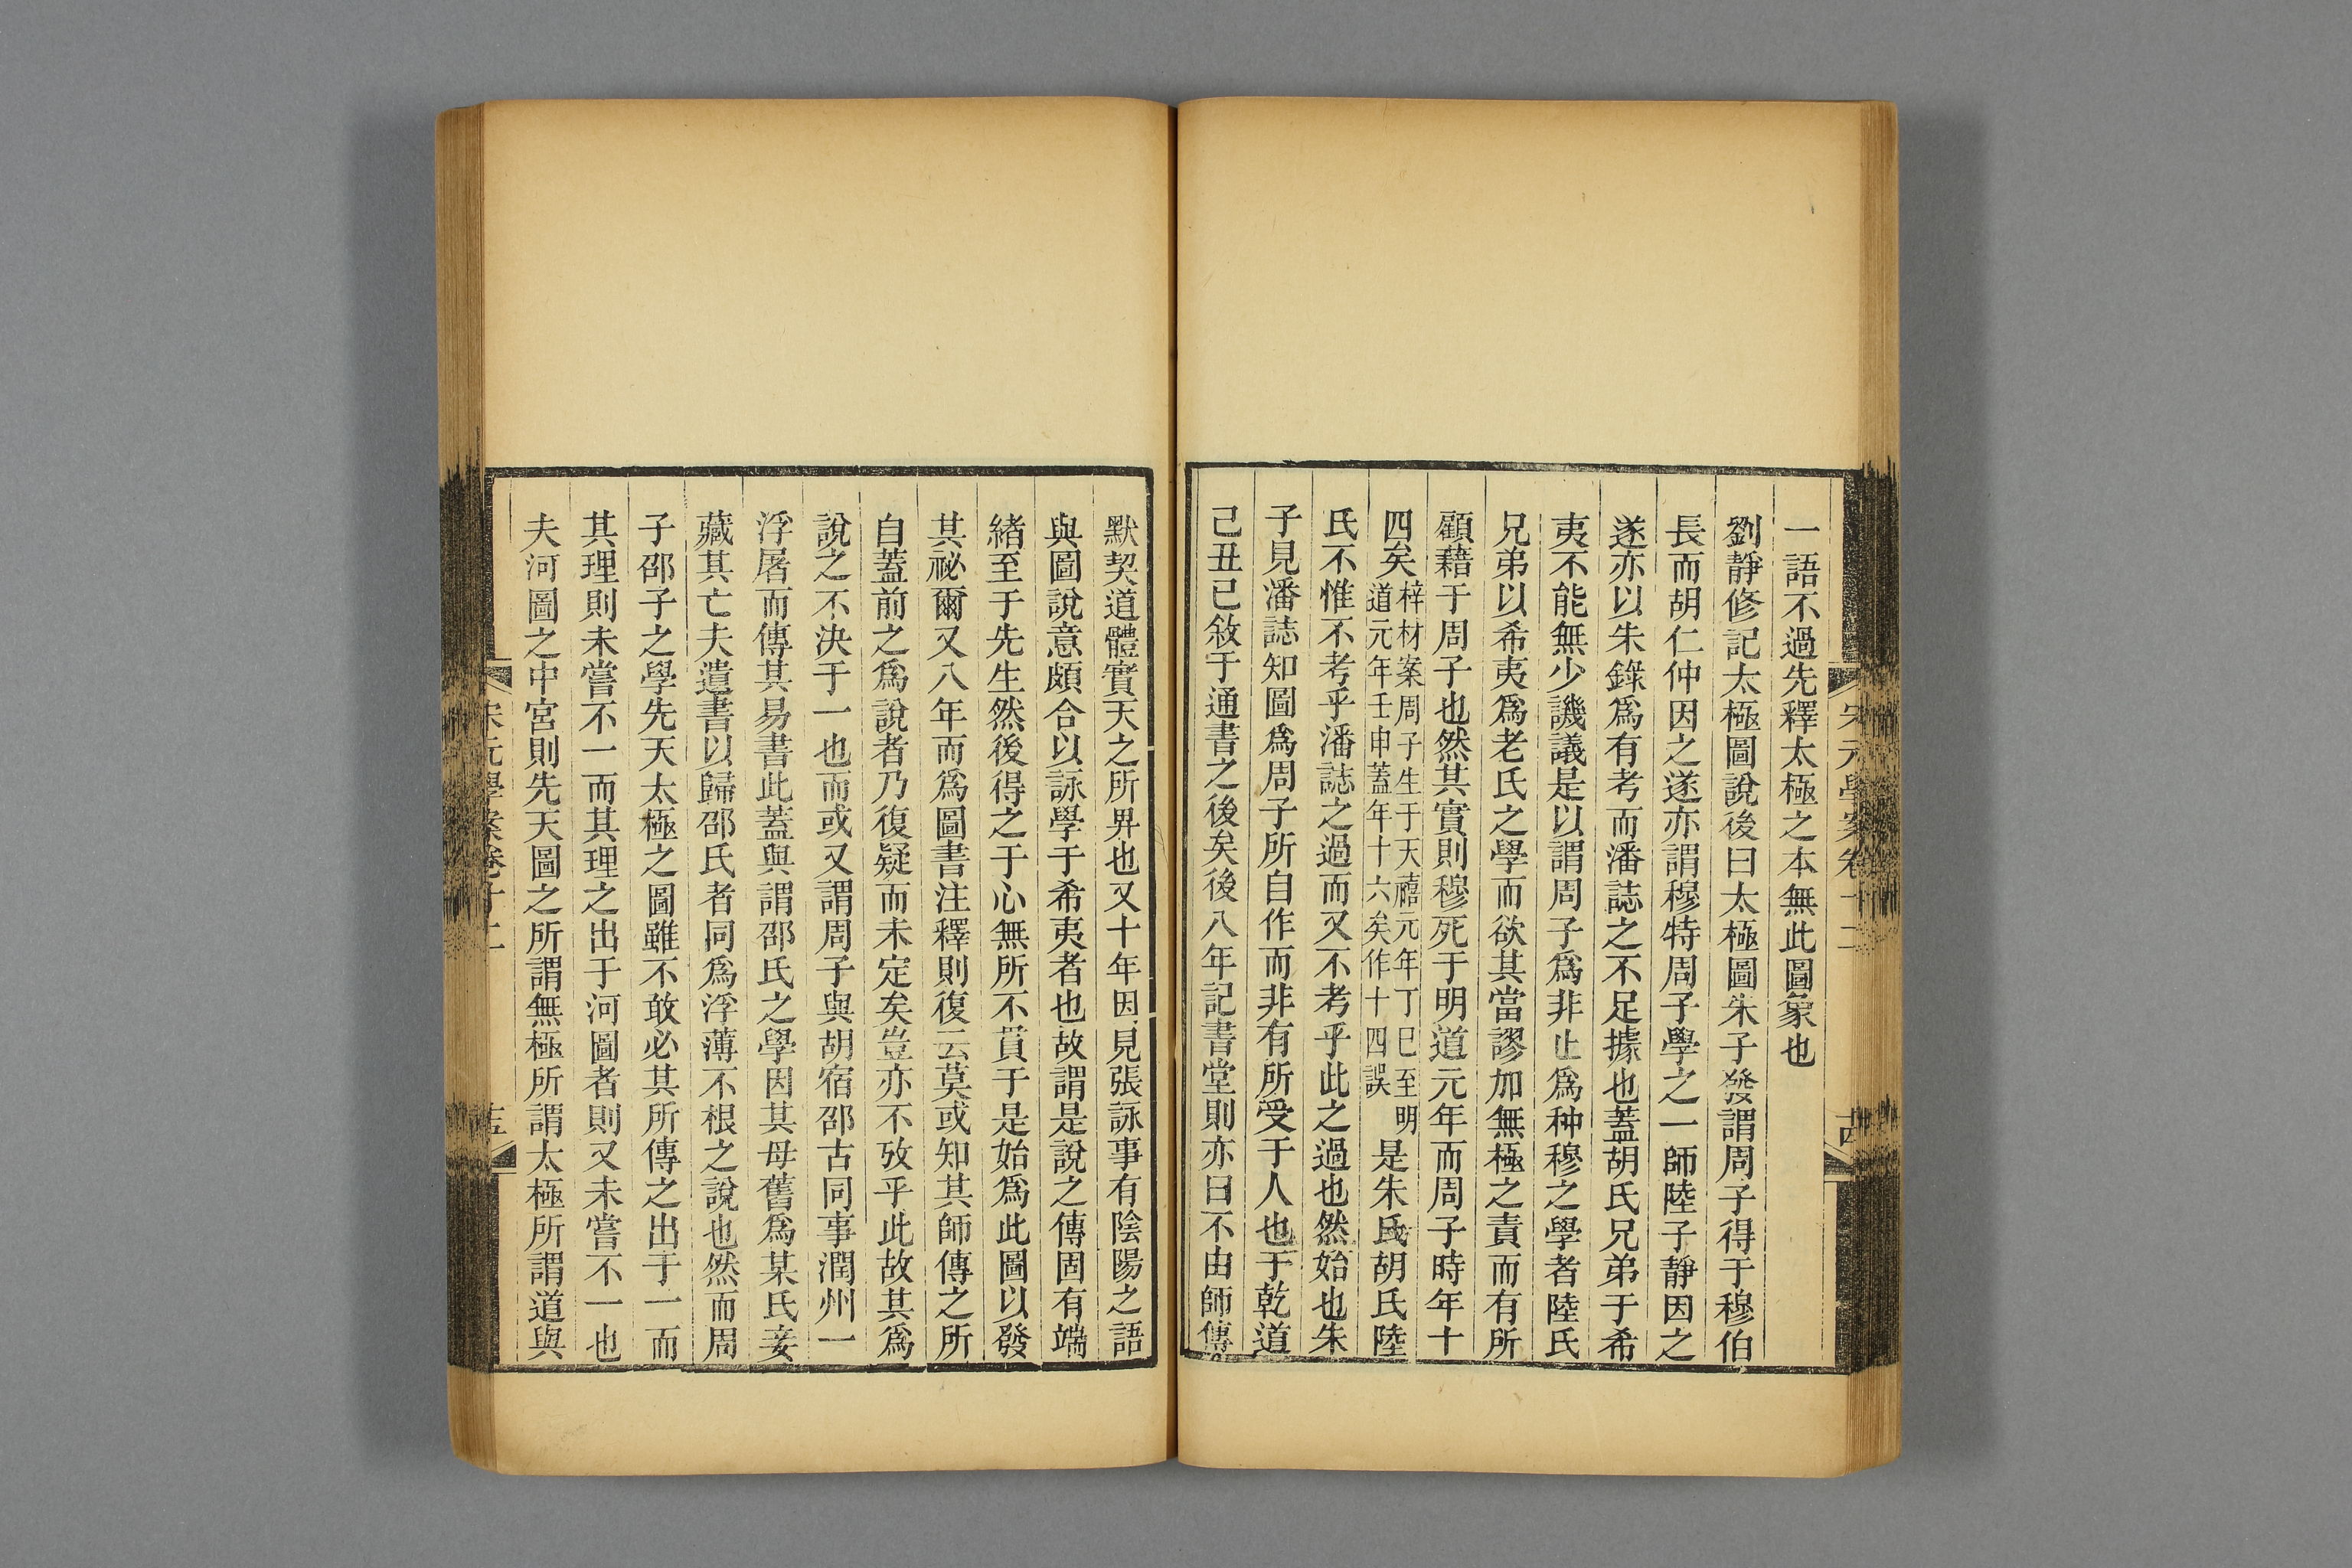 宋元學案卷十二
一語不過先釋太極之本無此圖象也
劉靜修記太極圖說後曰太極圖朱子發謂周子得于穆伯
長而胡仁仲因之遂亦謂穆特周子學之一師陸子靜因之
遂亦以朱錄爲有考而潘誌之不足據也蓋胡氏兄弟于希
夷不能無少譏議是以謂周子爲非止爲种穆之學者陸氏
兄弟以希夷爲老氏之學而欲其當謬加無極之責而有所
顧藉于周子也然其實則穆死于明道元年而周子時年十
四矣梓材案周子生于天禧元年丁巳至明
道元年壬申蓋年十六矣作十四誤
是朱氏胡氏陸
氏不惟不考乎潘誌之過而又不考乎此之過也然始也朱
子見潘誌知圖爲周子所自作而非有所受于人也于乾道
己丑已敘于通書之後矣後八年記書堂則亦曰不由師傳
默契道體實天之所畀也又十年因見張詠事有陰陽之語
與圖說意頗合以詠學于希夷者也故謂是說之傳固有端
緒至于先生然後得之于心無所不貫于是始爲此圖以發
其祕爾又八年而爲圖書注釋則復云莫或知其師傳之所
自蓋前之爲說者乃復疑而未定矣豈亦不攷乎此故其爲
說之不決于一也而或又謂周子與胡宿邵古同事潤州一
浮屠而傳其易書此蓋與謂邵氏之學因其母舊爲某氏妾
藏其亡夫遺書以歸邵氏者同爲浮薄不根之說也然而周
子邵子之學先天太極之圖雖不敢必其所傳之出于一而
其理則未嘗不一而其理之出于河圖者則又未嘗不一也
夫河圖之中宮則先天圖之所謂無極所謂太極所謂道與
宋元學案卷十二